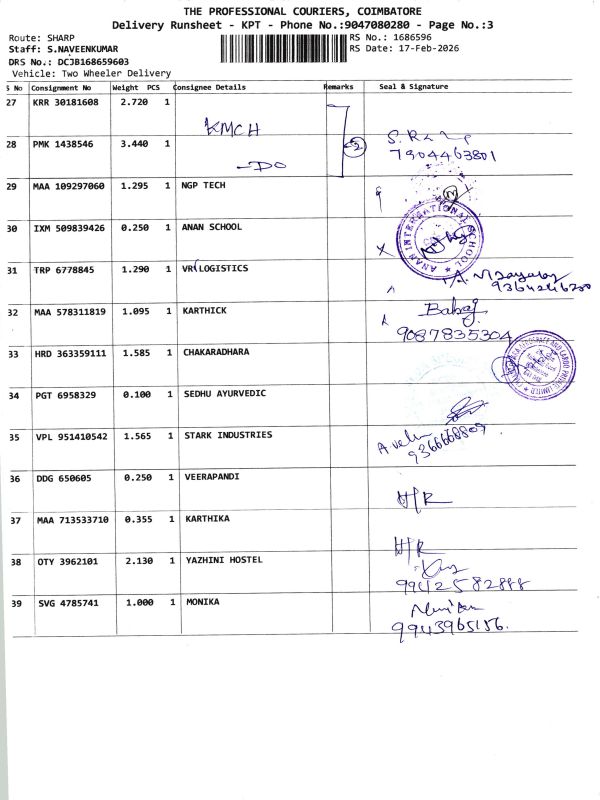 THE PROFESSIONAL COURIERS, COIMBATORE
Delivery Runsheet - KPT - Phone No.:9047080280 - Page No.:3
Route: SHARP
RS No.: 1686596
Staff: S.NAVEENKUMAR
RS Date: 17-Feb-2026
DRS No.: DCJB168659603
Vehicle: Two Wheeler Delivery
S No Consignment No Weight PCS Consignee Details Remarks Seal & Signature
27 KRR 30181608 2.720 1
KMCH
28 PMK 1438546 3.440 1
2
-DO
7904463801
29 MAA 109297060 1.295 1 NGP TECH
30 IXM 509839426 0.250 1 ANAN SCHOOL
ANAN INTERNATIONAL SCHOOL
31 TRP 6778845 1.290 1 VRLOGISTICS
32 MAA 578311819 1.095 1 KARTHICK
9087835304
33 HRD 363359111 1.585 1 CHAKARADHARA
34 PGT 6958329 0.100 1 SEDHU AYURVEDIC
35 VPL 951410542 1.565 1 STARK INDUSTRIES
A.velu
9366668809
36 DDG 650605 0.250 1 VEERAPANDI
H/R
37 MAA 713533710 0.355 1 KARTHIKA
H/R
38 OTY 3962101 2.130 1 YAZHINI HOSTEL
9942582888
39 SVG 4785741 1.000 1 MONIKA
9943965156.